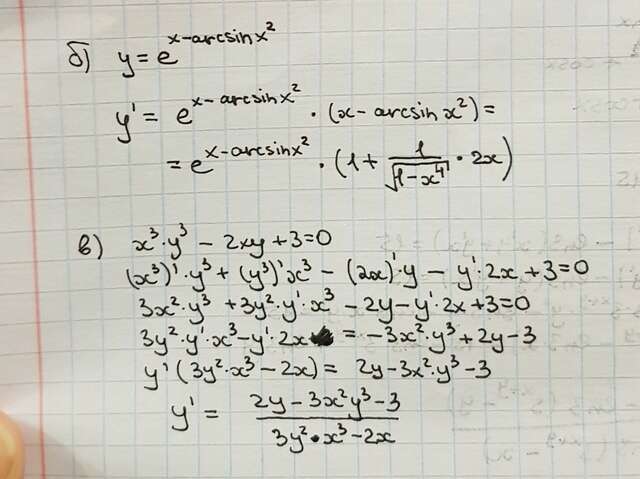 б) y = e^{x-arcsinx^2}
y' = e^{x-arcsinx^2} · (x - arcsin x^2) =
= e^{x-arcsinx^2} · (1 + \frac{1}{\sqrt{1-x^4}} · 2x)
в) x^3 · y^3 - 2xy + 3 = 0
(x^3)' · y^3 + (y^3)' x^3 - (2x)' · y - y' · 2x + 3 = 0
3x^2 · y^3 + 3y^2 · y' · x^3 - 2y - y' · 2x + 3 = 0
3y^2 · y' · x^3 - y' · 2x = -3x^2 · y^3 + 2y - 3
y' (3y^2 · x^3 - 2x) = 2y - 3x^2 · y^3 - 3
y' = \frac{2y - 3x^2y^3 - 3}{3y^2 · x^3 - 2x}